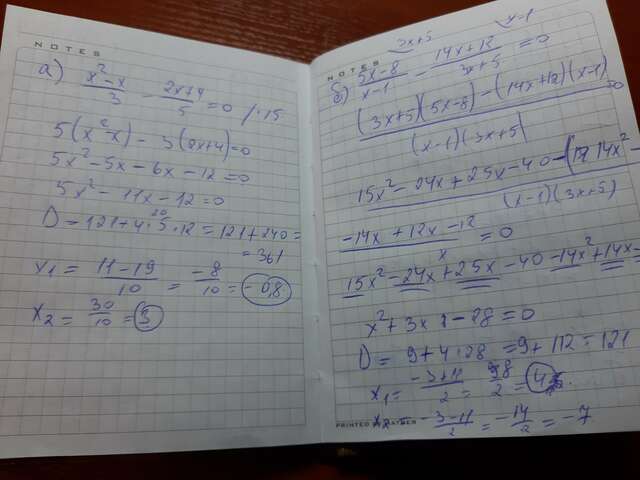 NOTES
а) x²-x/3 - 2x+4/5 = 0 /·15
5(x²-x) - 3(2x+4)=0
5x²-5x-6x-12=0
5x²-11x-12=0
D = 121+4·5·12 = 121+240 =
= 361
x₁ = 11-19/10 = -8/10 = -0,8
x₂ = 30/10 = 3
NOTES
3x+5 x-1
б) 5x-8/x-1 - 14x+12/3x+5 = 0
(3x+5)(5x-8) - (14x+12)(x-1)/(x-1)(3x+5) =0
15x²-24x+25x-40-( 14x²-/(x-1)(3x+5)
-14x+12x-12/x = 0
15x²-24x+25x-40-14x²+14x-
x²+3x-28=0
D = 9+4·28 = 9+112=121
x₁= -3+11/2 = 8/2 = 4
x₂ = -3-11/2 = -14/2 = -7